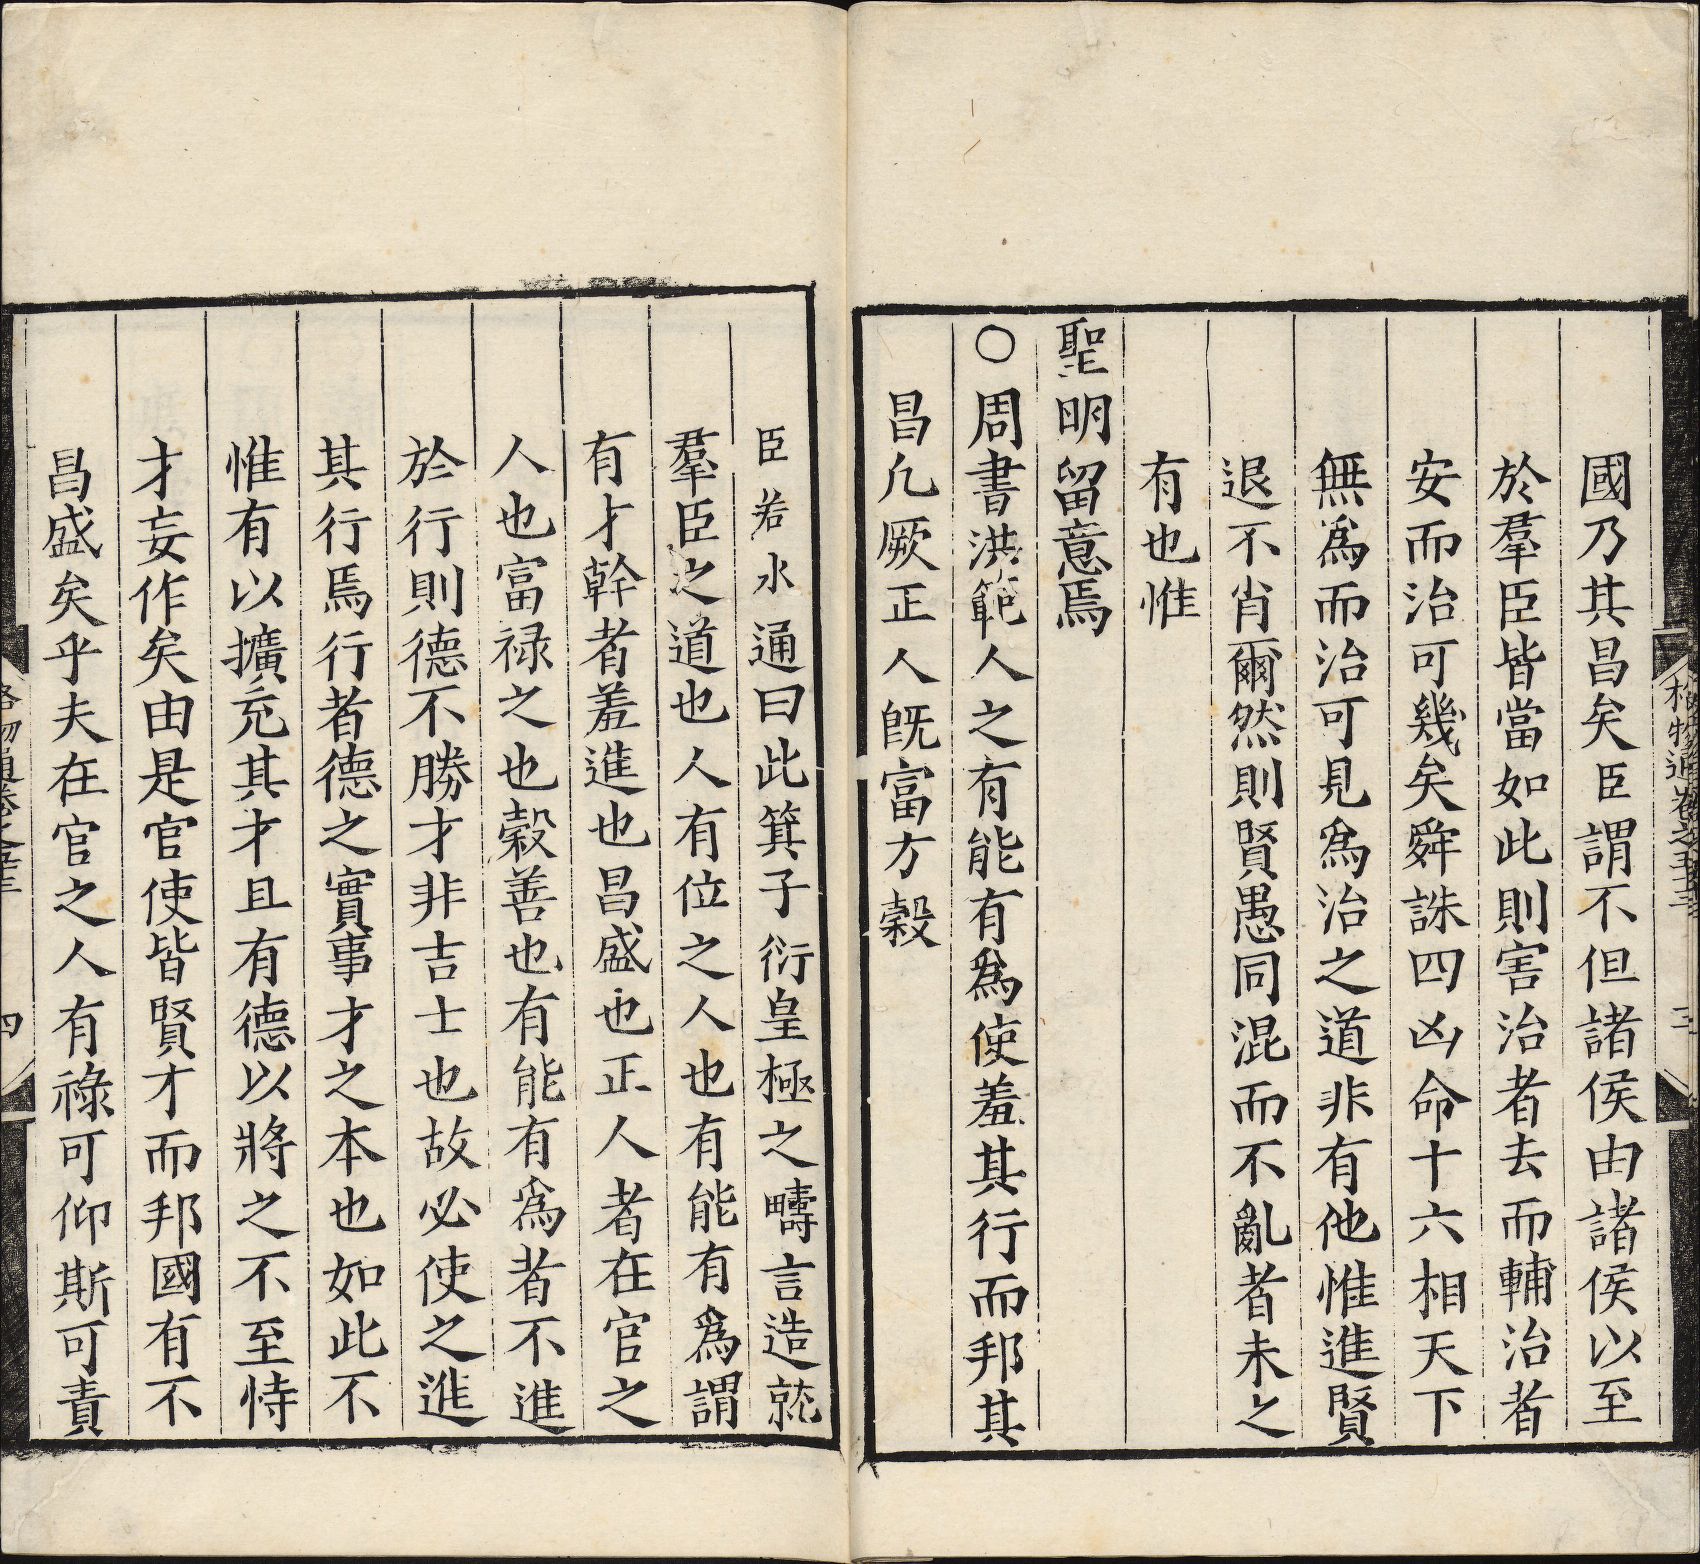 國乃其昌矣臣謂不但諸侯由諸侯以至
於羣臣皆當如此則害治者去而輔治者
安而治可幾矣舜誅四凶命十六相天下
無爲而治可見爲治之道非有他惟進賢
退不肖爾然則賢愚同混而不亂者未之
有也惟
聖明留意焉
○周書洪範人之有能有爲使羞其行而邦其
昌凢厥正人旣富方穀
臣若水通曰此箕子衍皇極之疇言造就
羣臣之道也人有位之人也有能有爲謂
有才幹者羞進也昌盛也正人者在官之
人也富禄之也穀善也有能有爲者不進
於行則德不勝才非吉士也故必使之進
其行焉行者德之實事才之本也如此不
惟有以擴充其才且有德以將之不至恃
才妄作矣由是官使皆賢才而邦國有不
昌盛矣乎夫在官之人有祿可仰斯可責
格物通卷之五十三
四